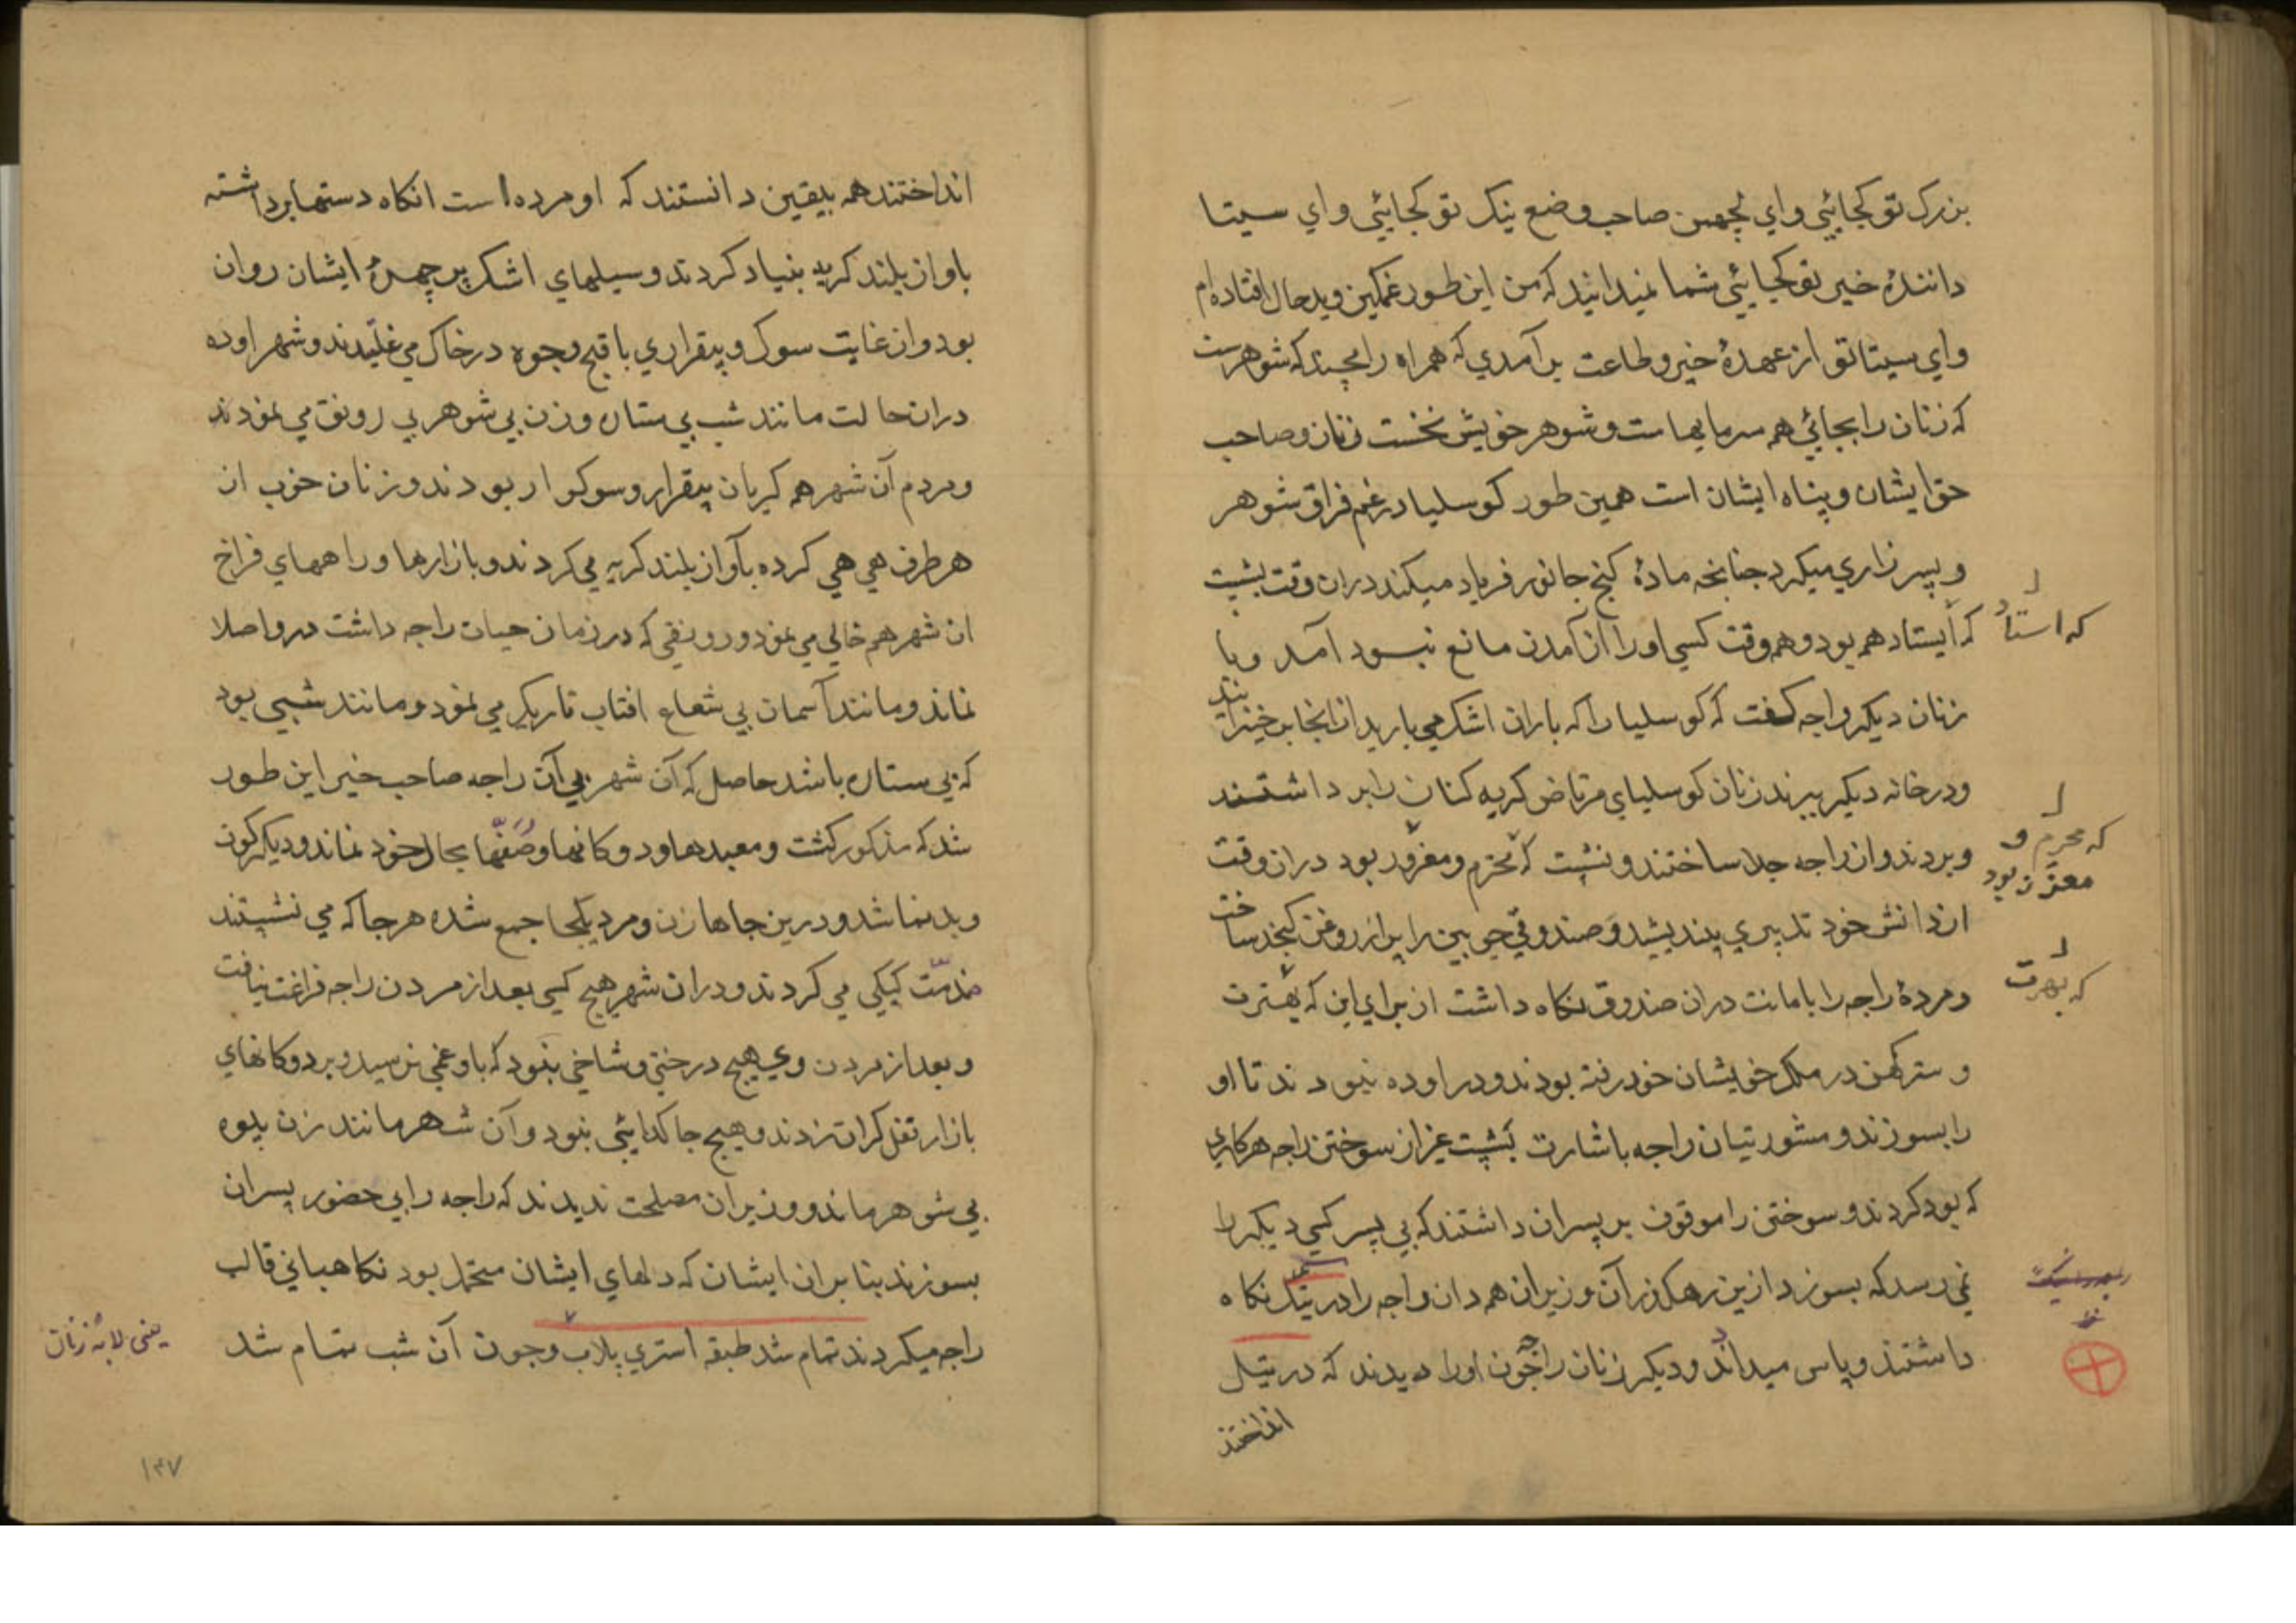 بزرک تو کجایئی و اي لچهمن صاحب وضع نیک تو کجایئی و اي سیتا
دانندهٔ خیر تو کجایئی شما نمیدانید که من این طور غمکین و بدحال افتاده ام
و اي سیتا تو از عهدهٔ خیر و طاعت بر آمدي که همراه رامچندر که شوهرست
که زنان را بجائی هم سرمایهاست و شوهر خویش نخست زنان و صاحب
حق ایشان و پناه ایشان است همین طور کوسلیا در غم فراق شوهر
و پسر زاري میکرد چنانچه مادهٔ کنج جانور فریاد میکند دران وقت بشیت
که ایستاد هم بود و همه وقت کسي او را از آمدن مانع نبود آمد و با
که استاد
زنان دیکر راجه کفت که کوسلیا را که باران اشک مي بارید از اینجا بر خیزانید
و در خانه دیکر ببرند زنان کوسلیاي مرتاض کریه کنان را بر داشتند
و بردند و از راجه جدا ساختند و بشیت که محرم و مغرور بود دران وقت
که محرم و
معزز بود
از دانش خود تدبیري بندیشید و صندوقي چوبین را پر از روغن کنجد ساخت
و مردهٔ راجه را بامانت دران صندوق نکاه داشت از براي این که بهترت
که بهرت
و سترکهن در ملک خویشان خود رفته بودند و در اوده نبودند تا او
را بسوزند و مشورتیان راجه باشارت بشیت غیر از سوختن راجه هر کاري
که بود کردند و سوختن را موقوف بر پسران داشتند که بي پسر کسي دیکر را
نمي رسد که بسوزد ازین رهکذر آن وزیران همه دان راجه را در تیل نکاه
داشتند و پاس میداند و دیکر زنان راجه چون او را دیدند که در تیل
انداختند
انداختند همه بیقین دانستند که او مرده است انکاه دستها برداشته
باواز بلند کریه بنیاد کردند و سیلهاي اشک بر چهرهٔ ایشان روان
بود و از غایت سوک و بیقراري باقبح وجوه در خاک مي غلتیدند و شهر اوده
دران حالت مانند شب بي ستاره و زن بي شوهر بي رونق مي نمودند
و مردم آن شهر همه کریان بیقرار و سوکوار بودند و زنان خوب از
هر طرف هي هي کرده بآواز بلند کریه مي کردند و بازارها و راههاي فراخ
ان شهر هم خالي مي نمود و رونقي که در زمان حیات راجه داشت درو اصلا
نماند و مانند آسمان بي شعاع افتاب تاریک مي نمود و مانند شبي بود
که بي ستاره باشد حاصل که آن شهر بي آن راجه صاحب خیر این طور
شد که مذکور کشت و معبدها و دوکانها و صفّها بحال خود نماند و دیکرکون
و بدنما شد و درین جاها زن و مرد یکجا جمع شده هر جا که مي نشستند
مذمّت کیکي مي کردند و دران شهر هیچ کسي بعد از مردن راجه فراغت نیافت
و بعد از مردن وي هیچ درختي و شاخي نبود که باو غمي نرسید و بر دوکانهاي
بازار قفل کران زدند و هیچ جا کدایئي نبود و آن شهر مانند زن بیوه
بي شوهر ماند و وزیران مصلحت ندیدند که راجه را بي حضور پسران
بسوزند بنابران ایشان که دلهاي ایشان متحمل بود نکاهباني قالب
راجه میکردند تمام شد طبقه استري پلاب و چون آن شب تمام شد
یعنی لابهٔ زنان
۱۳۷